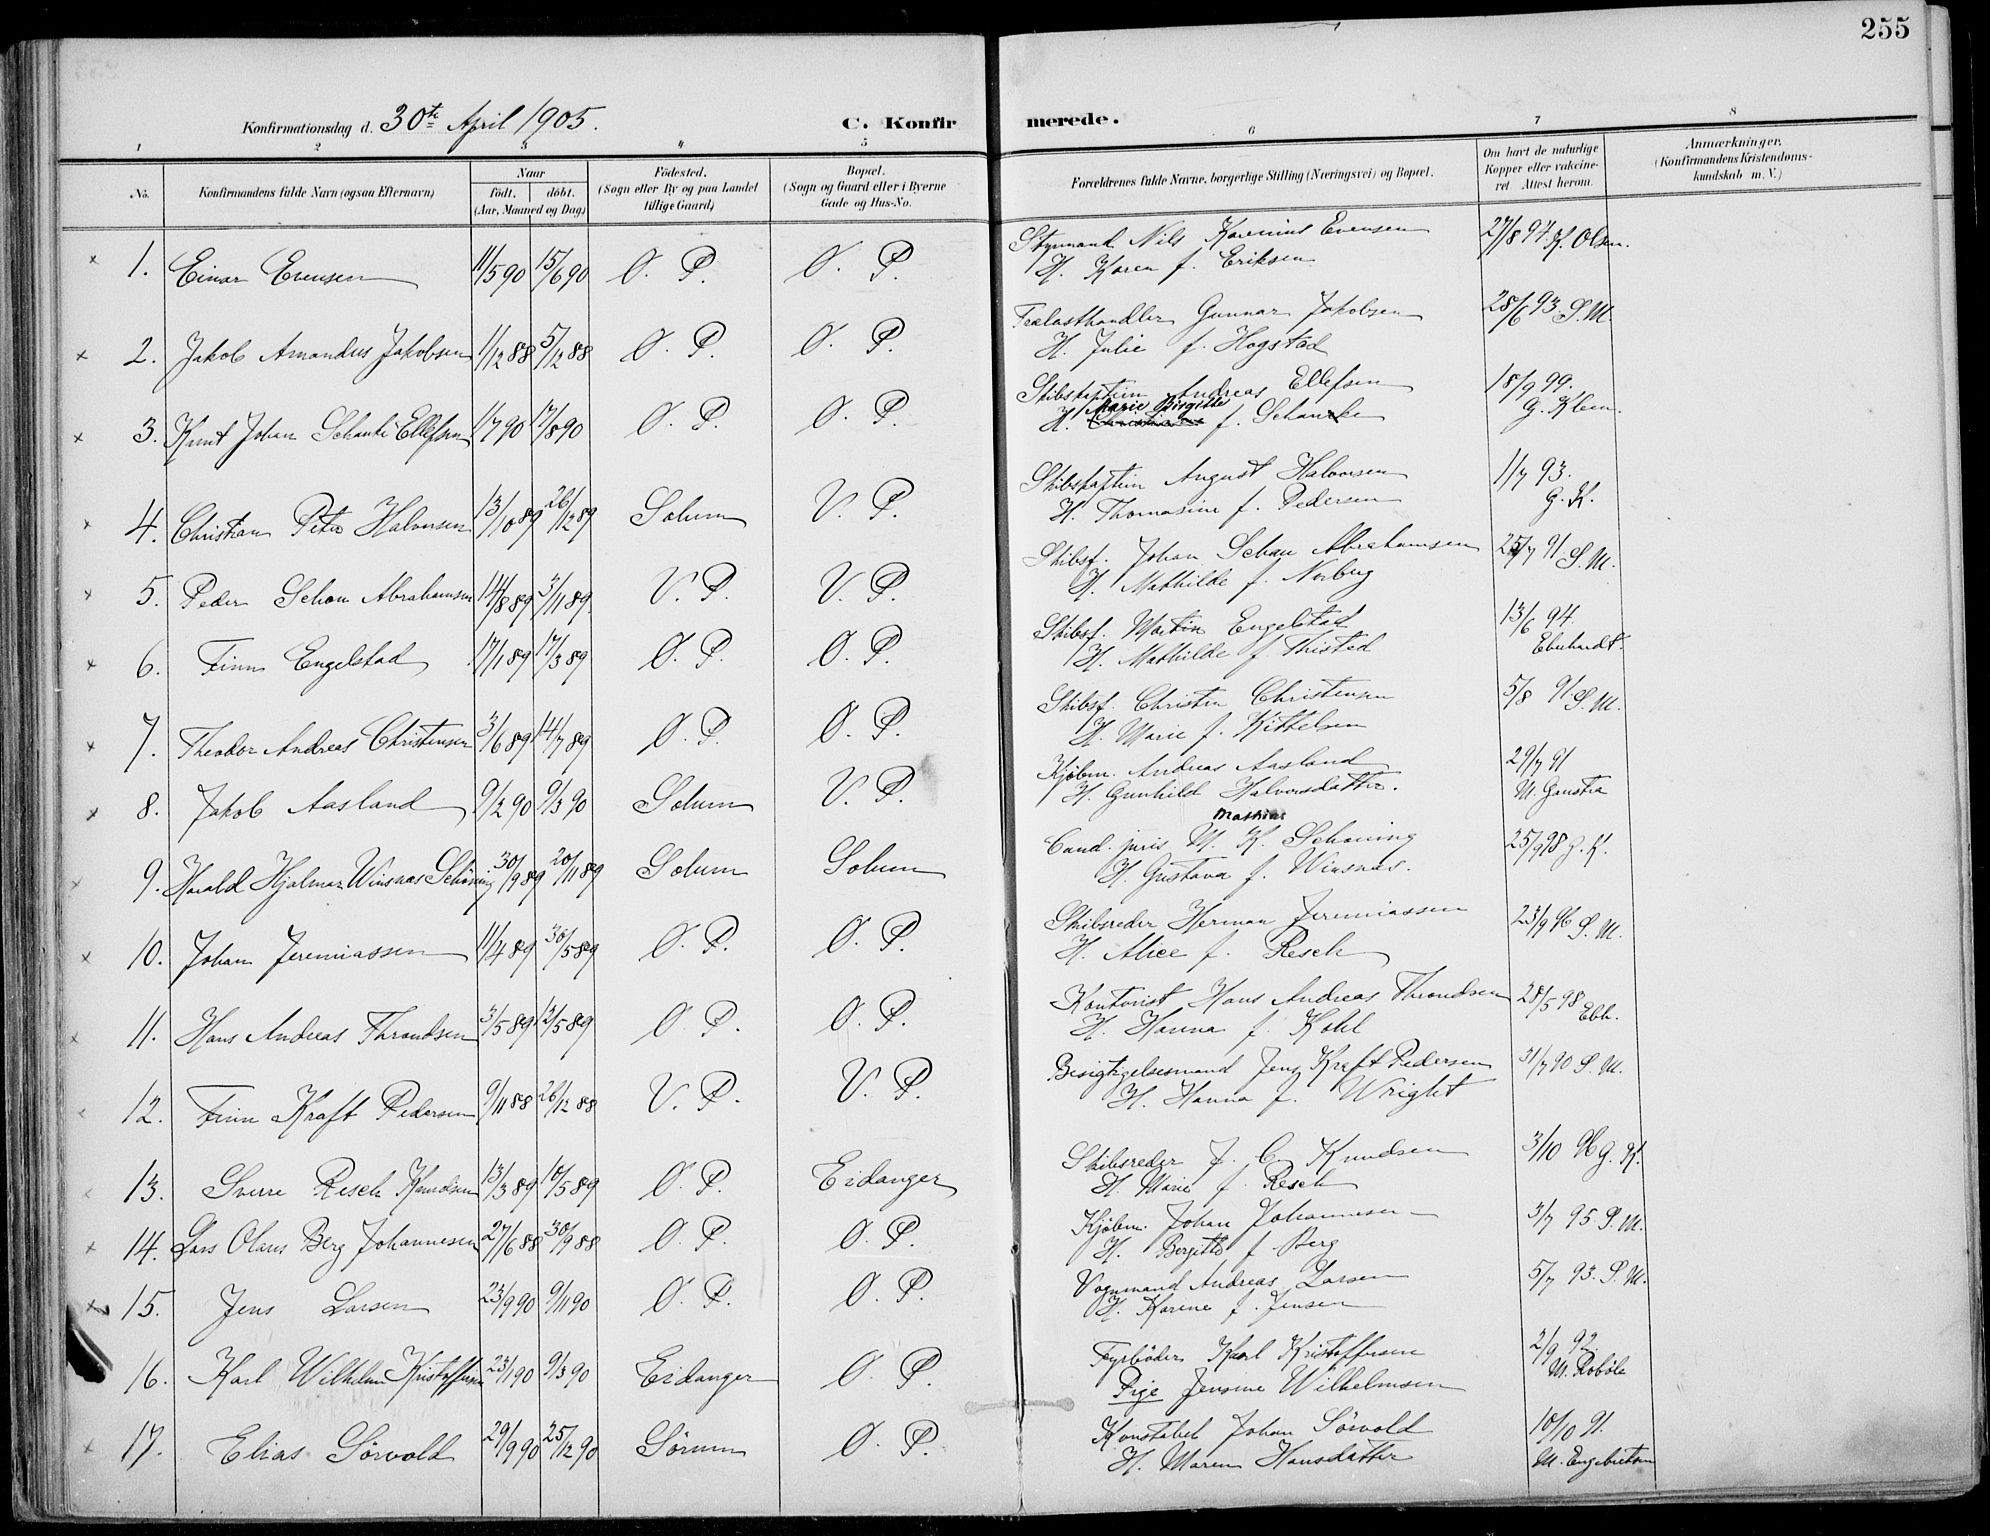 255
Konfirmationsdag d. 30te April 1905.
C. Konfirmerede.
1 2 3 4 5 6 7 8
No.
Konfirmandens fulde Navn (ogsaa Efternavn)
Naar
født. døbt.
(Aar, Maaned og Dag)
Födested.
(Sogn eller By og paa Landet
tillige Gaard)
Bopæl.
(Sogn og Gaard eller i Byerne
Gade og Hus-No.
Forældrenes fulde Navne, borgerlige Stilling (Næringsvei) og Bopæl.
Om havt de naturlige
Kopper eller vakcine-
ret. Attest herom.
Anmærkninger.
(Konfirmandens Kristendoms-
kundskab m. V.)
× 1. Einar Evensen 11/5 90 15/6 90 Ø. P. Ø. P. Styrmand Nils Karenius Evensen 27/8 97. K. Olsen.
H. Karen f. Eriksen
× 2. Jakob Amandus Jakobsen 1/12 88 5/12 88 Ø. P. Ø. P. Trælasthandler Gunnar Jakobsen 28/6 93. S. M.
H. Julie f. Hogstad
× 3. Knut Johan Schanke Ellefsen 1/7 90 17/8 90 Ø. P. Ø. P. Skibskaptein Andreas Ellefsen 18/9 99.
H. Marie Birgitte f. Schanke G. Kleen.
× 4. Christian Peter Halvorsen 13/10 89 26/12 89 Solum V. P. Skibskaptein August Halvorsen 1/7 93.
H. Thomasine f. Pedersen G. K.
× 5. Peder Schau Abrahamsen 14/8 89 3/11 89. V. P. V. P. Skibsf. Johan Schau Abrahamsen 25/7 91 S. M.
H. Mathilde f. Norberg
× 6. Finn Engelstad 17/1 89 17/3 89 Ø. P. Ø. P. Skibsf. Martin Engelstad 13/6 94.
H. Mathilde f. Thisted Eberhardt.
× 7. Theodor Andreas Christensen 3/6 89 14/7 89 Ø. P. Ø. P. Skibsf. Christen Christensen 5/8 91. S. M.
H. Marie f. Kittelsen
× 8. Jakob Aasland 9/2 90 9/3 90 Solum V. P. Kjøbm. Andreas Aasland 29/7 91
H. Gunhild Halvorsdatter. M. Gaustra
Mathias
9. Harald Hjalmar Winsnæs Schöning 30/9 89 20/11 89 Solum Solum Cand. juris M. K. Schöning 25/9 98 G. K.
H. Gustava f. Winsnæs.
× 10. Johan Jeremiassen 11/4 89 30/5 89 Ø. P. Ø. P. Skibsreder Herman Jeremiassen 23/9 96 S. M.
H. Alice f. Resch
× 11. Hans Andreas Throndsen 3/5 89 12/5 89 Ø. P. Ø. P. Kontorist Hans Andreas Throndsen 28/5 98 Ebh.
H. Hanna f. Kohl
12. Finn Kraft Pedersen 9/11 88 26/12 88 V. P. V. P. Besigtigelsesmand Jens Kraft Pedersen 31/7 90 S. M.
H. Hanna f. Wright
13. Sverre Resch Knudsen 13/3 89 10/5 89 Ø. P. Eidanger Skibsreder J. C. Knudsen 3/10 96 G. K.
H. Marie f. Resch
× 14. Lars Olaus Berg Johannesen 27/6 88 30/9 88 Ø. P. Ø. P. Kjøbm. Johan Johannesen 3/7 95. S. M.
H. Bergitte f. Berg
× 15. Jens Larsen 23/9 90 9/11 90 Ø. P. Ø. P. Vognmand Andreas Larsen 5/7 93. S. M.
H. Karine f. Jensen
16. Karl Wilhelm Kristoffersen 23/1 90 9/3 90 Eidanger Ø. P. Fyrbøder Karl Kristoffersen 2/9 92.
Pige Jensine Wilhelmsen M. Robøle
× 17. Elias Sörvold 29/9 90 25/12 90 Sörum Ø. P. Konstabel Johan Sörvold 10/10 91.
H. Maren Hansdatter M. Engebretsen